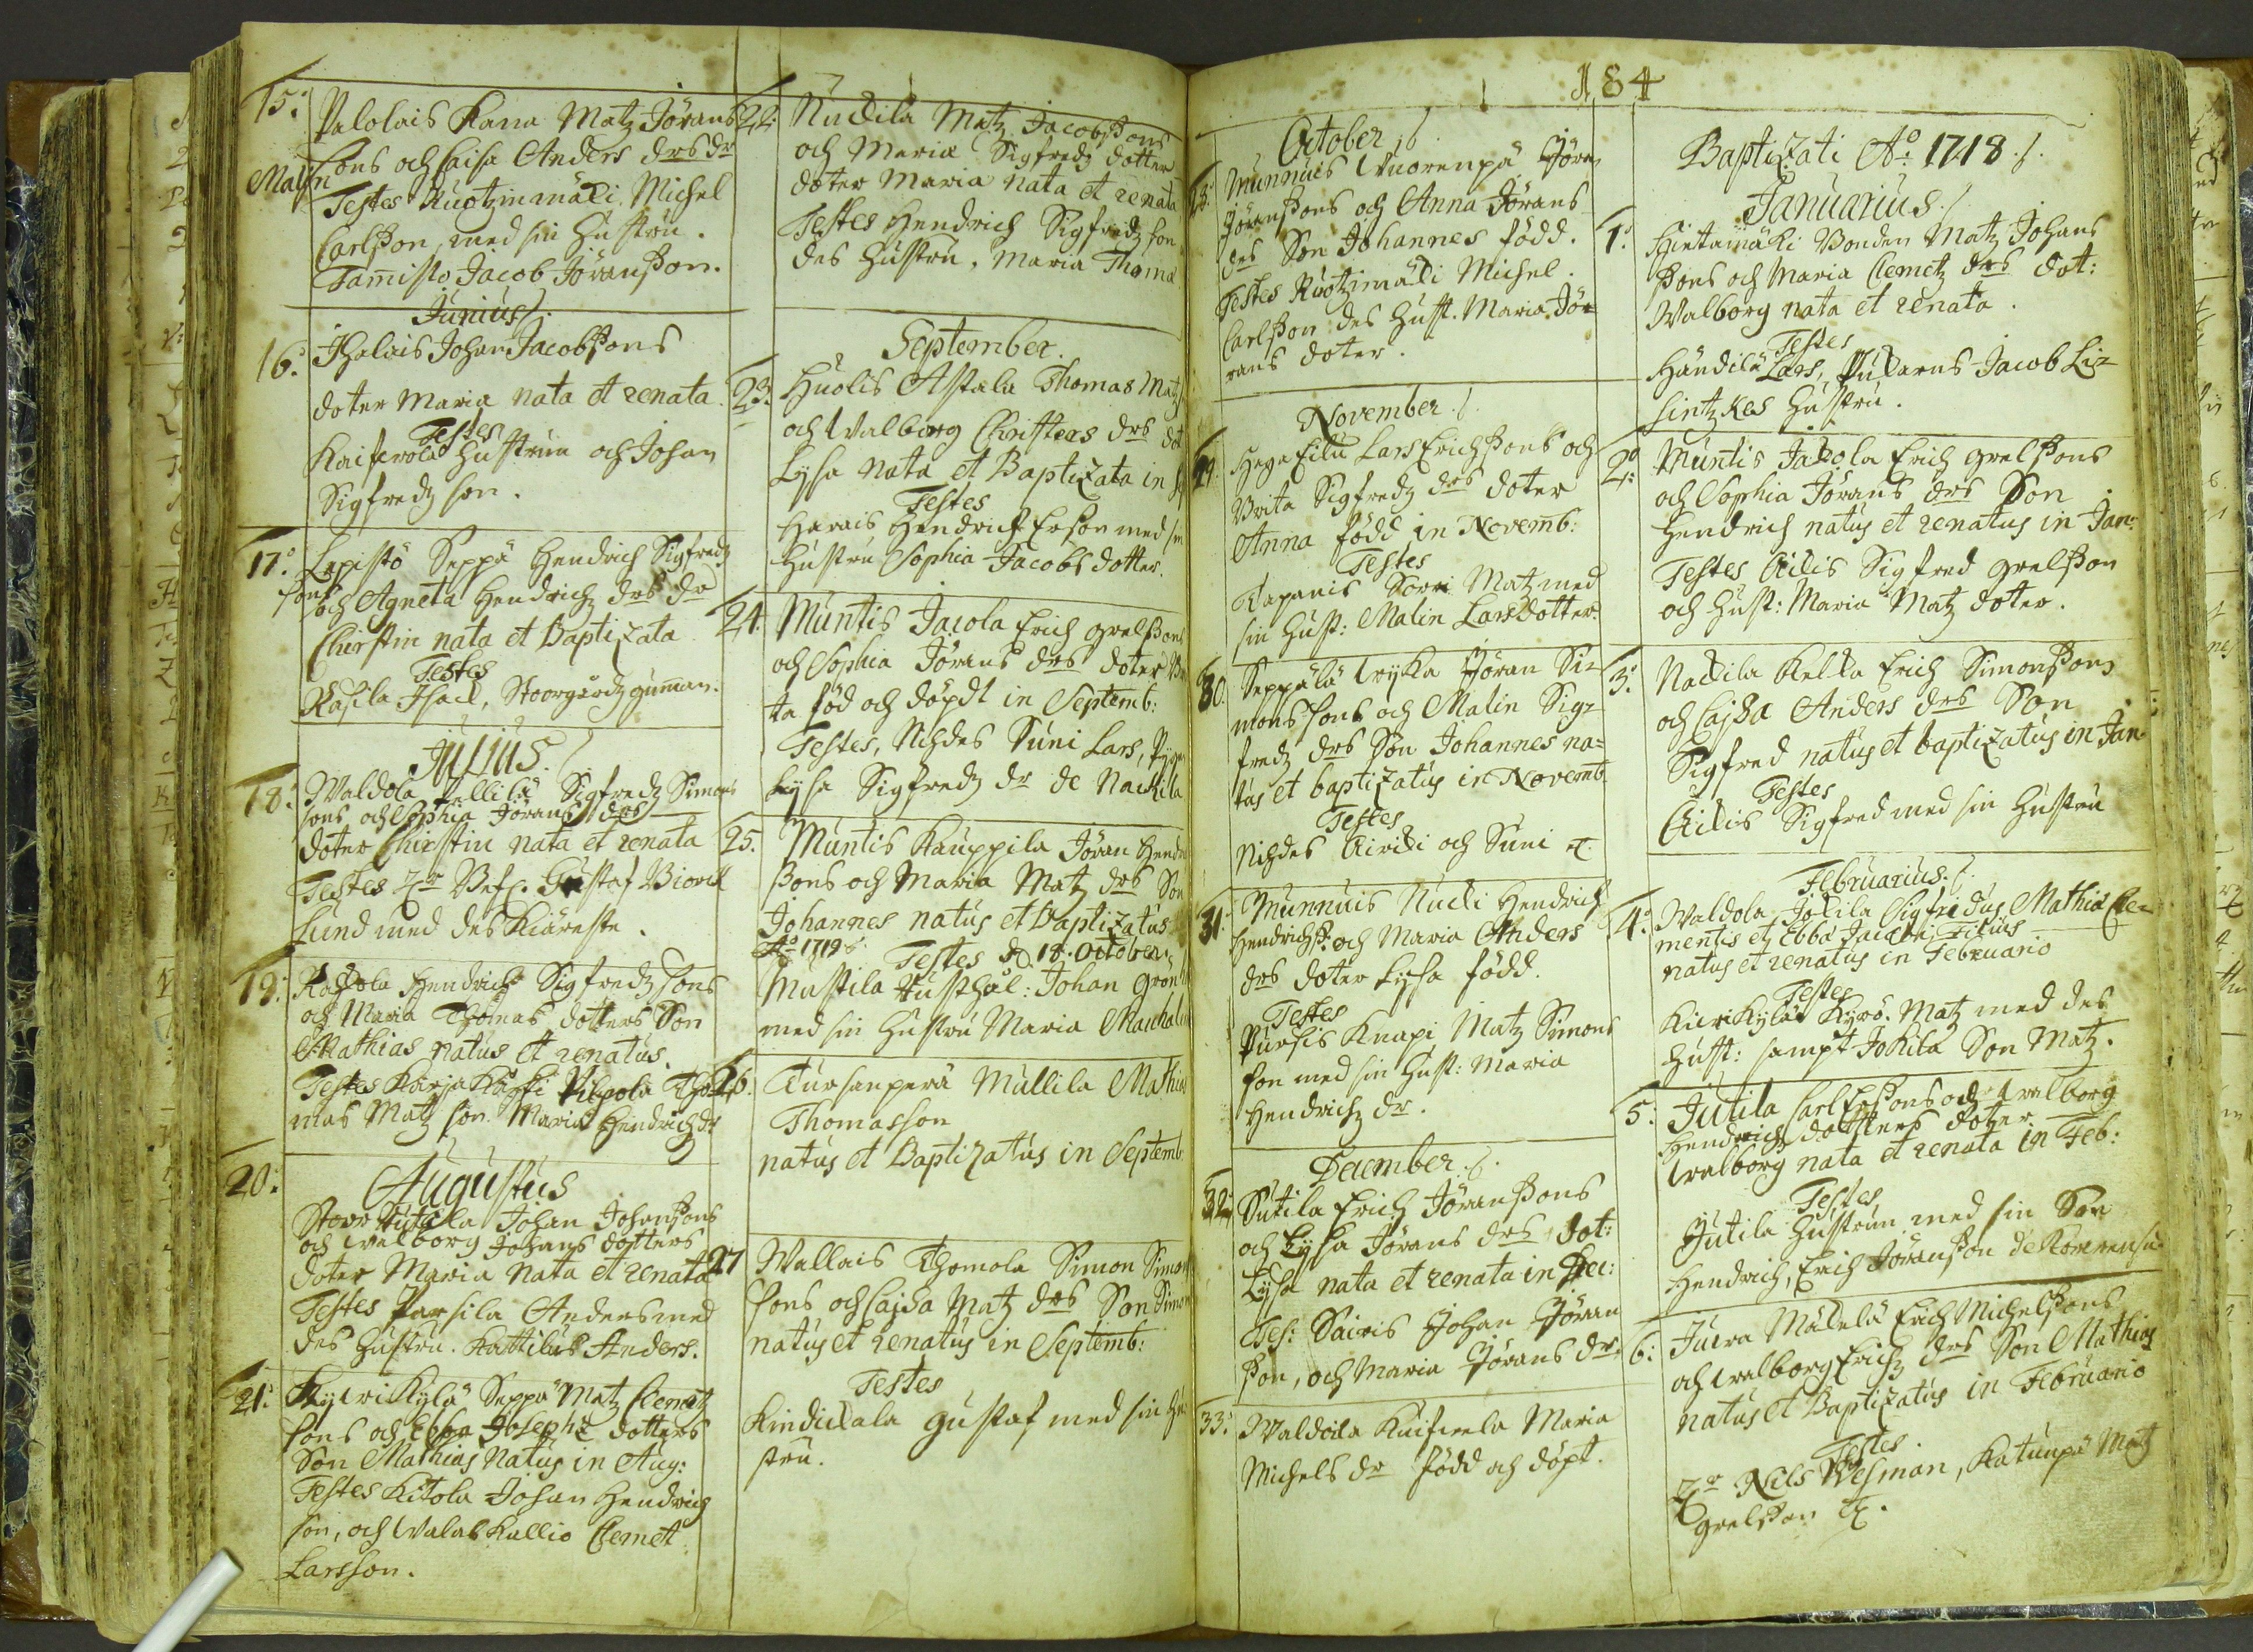 15. Palolais Kana Matz Jörans
sons och Caisa Anders drs dr
Malin
Testes Kuotzinmäki Michel
Carlsson, med sin hustru.
Tam̄isto Jacob Jöransson.
Junius
16. Thalais Johan Jacobssons
doter Maria nata et renata.
Testes
Kaiserola Hustrun och Johan
Sigfredz son.
17. Lepistö Seppä Hendrich Sigfredz
sons och Agneta Hendrichz drs dr
Chirstin nata et Baptizata
Testes
Rasila Isack, Stoorgårdz gum̄an.
Julius
18. Waldola Sigfredz Simons
sons och Sophia Jörans drs
doter Chirstin nata et renata
Testes Gustaf Biorck
Lund med des Kiäreste.
19. Hendrich Sigfredz sons
och Maria Thomas dotters Son
Mathias natus et renatus.
Testes Karja Koski Pilpola Tho
mas Matz son. Maria Hendrichdr
20. Augustus
Stoor Johan Johanssons
och Walborg Johans dotters
doter Maria nata et renata
Testes Parsila Anders med
des Hustru. Kattilus Anders.
21. Kylä Seppä Matz Clemetz
sons och Ebba Josephi dotters
Son Mathias Natus in Aug:
Testes Kitola Johan Hendrich
son, och Walas Kallio Clemet
Larsson.
22. Nuckila Matz Jacobssons
och Maria Sigfredz dotter
doter Maria nata et renata
Testes Hendrich Sigfredz son
des hustru, Maria Thoma
September.
23. Huolis Astala Thomas Matz
och Walborg Christers drs dot
Lysa nata et Baptizata in
Testes
Harais Hendrich Erson med sin
Hustru Sophia Jacobs dotter.
24. Muntis Jacola Erich Grelssons
och Sophia Jörans drs doter
ta föd och döpdt in Septemb:
Testes, Nihdes Suni Lars,
Lysa Sigfredz dr de Nackila
25. Muntis Kauppila Jöran
sons och Maria Matz drs Son
Johannes natus et Baptizatus
Ao 1719 Testes d. 18. October.
Mustila Rusthål: Johan
med sin hustru Maria
26. Tursanperä Mullila Mathias
Thomasson
natus et Baptizatus in Septemb.
27 Wallais Thomola Simon Simon
sons och Cajsa Matz drs Son Simon
natus et renatus in Septemb:
Testes
Kindickala Gustaf med sin hu
stru.
184
October
28. Munnuis Wuorenpä Jöran
Jöranssons och Anna Jörans
des Son Johannes född.
Testes Ruotzimäki Michel
Carlsson des Hust. Maria Jö-
rans doter.
November
29. Lars Erichssons och
Brita Sigfredz drs doter
Anna född in Novemb:
Testes
Tapanis Sorri Matz med
sin Hust: Malin Larsdotter.
30. Seppälä Jöran Si-
mons sons och Malin Sig-
fredz drs Son Johannes na-
tus et baptizatus in Novemb
Testes
Nihdes Airicki och Suni
31. Munnuis Nucki Hendrich
Hendrichss. och Maria Anders
drs doter Lysa född.
Testes
Pursis Knapi Matz Simons
son med sin Hust: Maria
Hendrichz dr.
December
32. Sutila Erich Jöranssons
och Lysa Jörans drs dot:
Lysa nata et renata in Dec:
Tes: Sairis Johan Jöran
son, och Maria Jörans dr.
33. Waldoila Maria
Michels dr född och döpt.
Baptizati Ao 1718.
Januarius
1. Hietamäki Bonden Matz Johans
sons och Maria Clemetz drs dot:
Walborg nata et renata.
Testes
Händilä Lars, Jacob
Hustru.
2. Muntis Jacola Erich Grelssons
och Sophia Jörans drs Son
Hendrich natus et renatus in Jan:
Testes Sigfred Grelsson
och Hust: Maria Matz doter.
3. Nackila Kelka Erich Simonssons
och Cajsa Anders drs Son
Sigfred natus et baptizatus in Jan:
Testes
Sigfred med sin Hustru
Februarius
4. Waldola Jokila Sigfredus Mathiæ Cle-
mentis et Ebba Jacobi, Filius
natus et renatus in Februario
Testes
Kirikylä Kyrö. Matz med des
Hust: sampt Jokila Son Matz.
5. Jutila Carl Erssons och Walborg
Hendrichz dotters doter
Walborg nata et renata in Feb:
Testes
Jutila Hustrun med sin Son
Hendrich, Erich Jöransson de
6. Mäkelä Erich Michelssons
och Walborg Erichz drs Son Mathias
natus et Baptizatus in Februario
Testes
Nils Wesman, Katunpä Matz
Grelsson